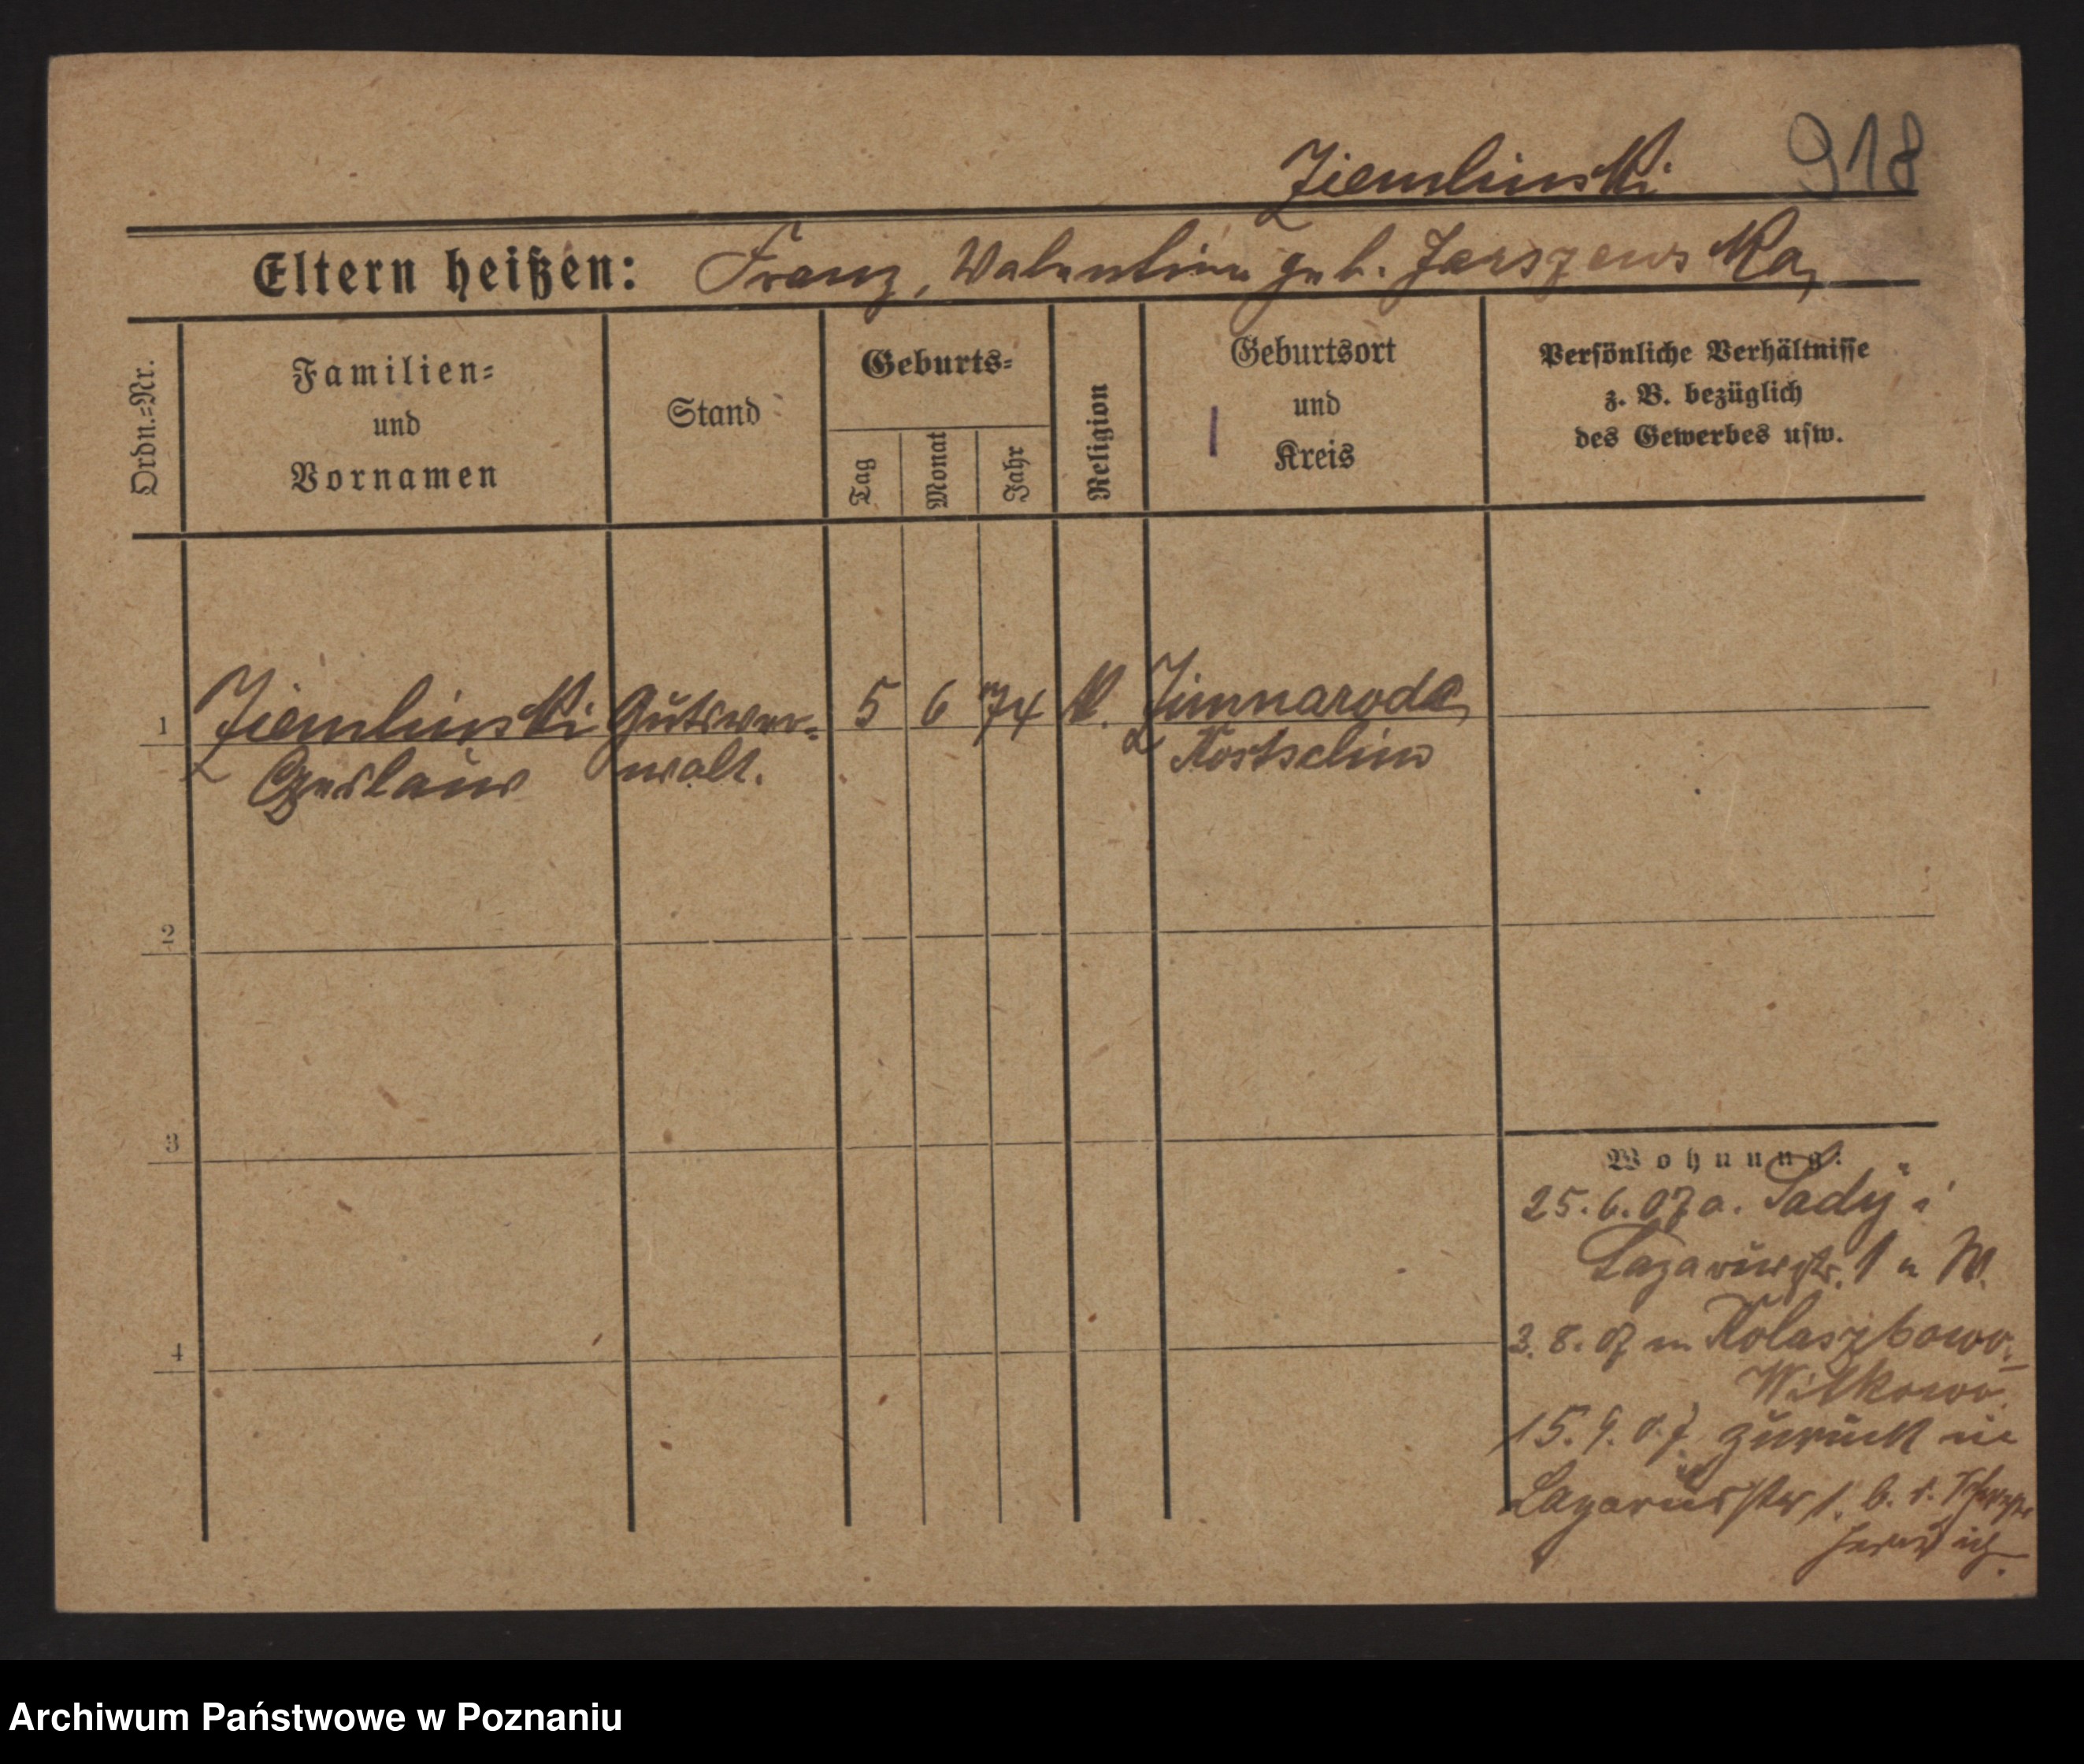 Ziemlinski 918
Eltern heißen: Franz, Valentine geb. Jarszewska,
Ordn.=Nr.
Familien=
und
Vornamen
Stand
Geburts=
Tag
Monat
Jahr
Religion
Geburtsort
und
Kreis
Persönliche Verhältnisse
z. B. bezüglich
des Gewerbes usw.
1 Ziemlinski Gutsver= 5 6 74 k. Zimnaroda,
Czeslaus walt. Kostschin
2
3
4
Wohnung:
25.6.07 a. Sady i
Lazarusstr. 1
3.8.07 n Kolaszkowo,
Witkowo.
15.9.07 zurück in
Lazarusstr 1. b.
Archiwum Państwowe w Poznaniu